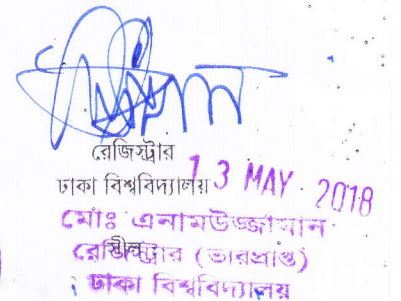 রেজিস্ট্রার
ঢাকা বিশ্ববিদ্যালয়
13 MAY 2018
মোঃ এনামউজ্জামান
রেজিস্ট্রার (ভারপ্রাপ্ত)
সীল
ঢাকা বিশ্ববিদ্যালয়